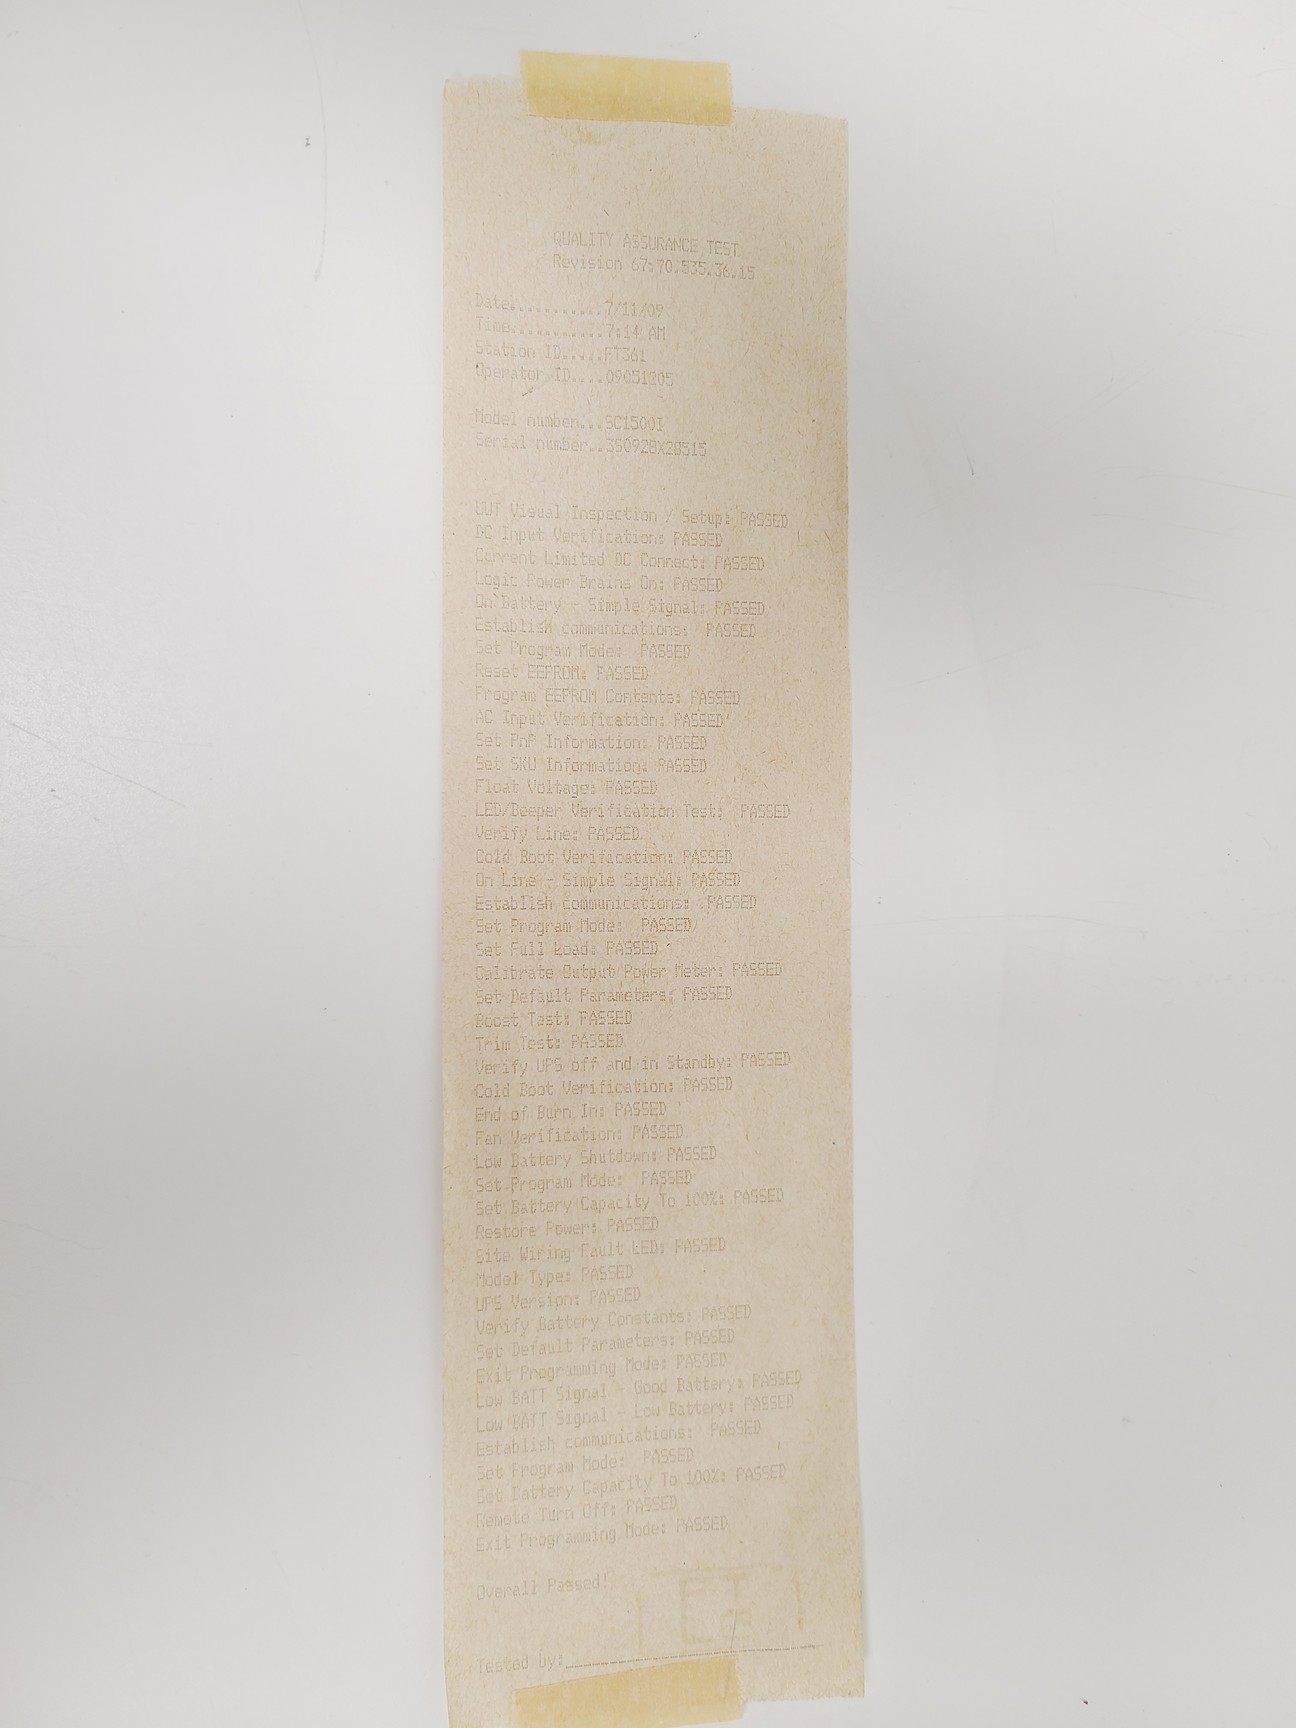 QUALITY ASSURANCE TEST
Revision 67:70.535.36.15
Date...........7/11/09
Time...........7:14 AM
Station ID.....FT361
Operator ID....09051205
Model number...SC1500I
Serial number..3S0928X28515
UUT Visual Inspection / Setup: PASSED
DC Input Verification: PASSED
Current Limited DC Connect: PASSED
Logic Power Brains On: PASSED
On Battery - Simple Signal: PASSED
Establish communications:  PASSED
Set Program Mode:  PASSED
Reset EEPROM: PASSED
Program EEPROM Contents: PASSED
AC Input Verification: PASSED
Set PnP Information: PASSED
Set SKU Information: PASSED
Float Voltage: PASSED
LED/Beeper Verification Test:  PASSED
Verify Line: PASSED
Cold Boot Verification: PASSED
On Line - Simple Signal: PASSED
Establish communications:  PASSED
Set Program Mode:  PASSED
Set Full Load: PASSED
Calibrate Output Power Meter: PASSED
Set Default Parameters: PASSED
Boost Test: PASSED
Trim Test: PASSED
Verify UPS off and in Standby: PASSED
Cold Boot Verification: PASSED
End of Burn In: PASSED
Fan Verification: PASSED
Low Battery Shutdown: PASSED
Set Program Mode:  PASSED
Set Battery Capacity To 100%: PASSED
Restore Power: PASSED
Site Wiring Fault LED: PASSED
Model Type: PASSED
UPS Version: PASSED
Verify Battery Constants: PASSED
Set Default Parameters: PASSED
Exit Programming Mode: PASSED
Low BATT Signal - Good Battery: PASSED
Low BATT Signal - Low Battery: PASSED
Establish communications:  PASSED
Set Program Mode:  PASSED
Set Battery Capacity To 100%: PASSED
Remote Turn Off: PASSED
Exit Programming Mode: PASSED
Overall Passed!
Tested by: